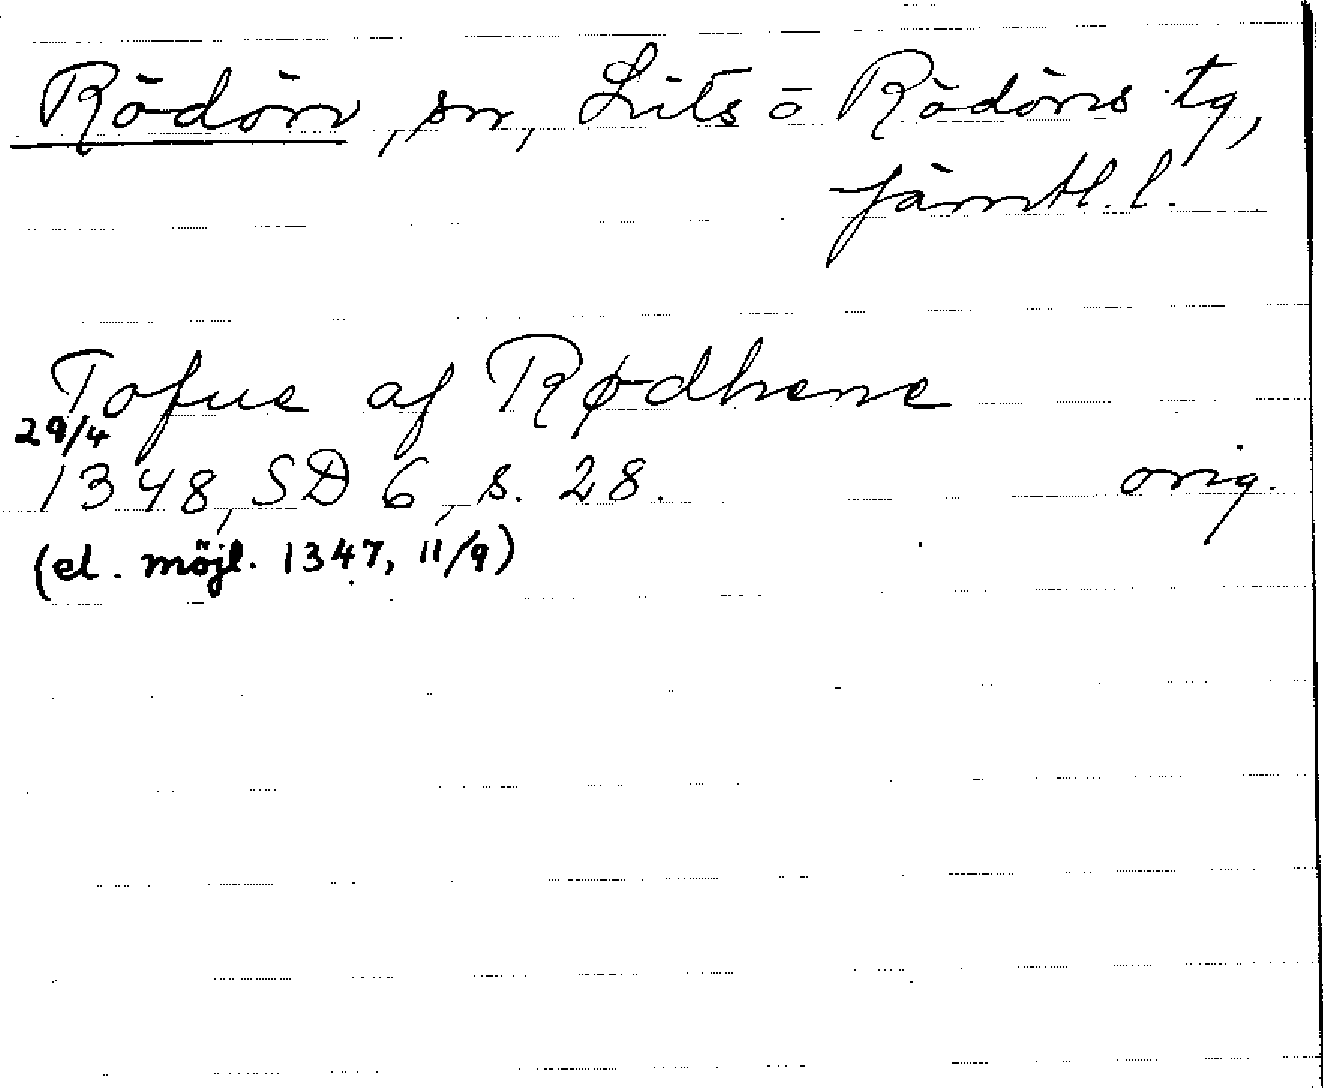 Rödön, sn, Lits o Rödöns tg,
Jämtl. l.
Tofue af Rødhene
29/4
1348, SD 6, s. 28. orig.
(el. möjl. 1347, 11/9)